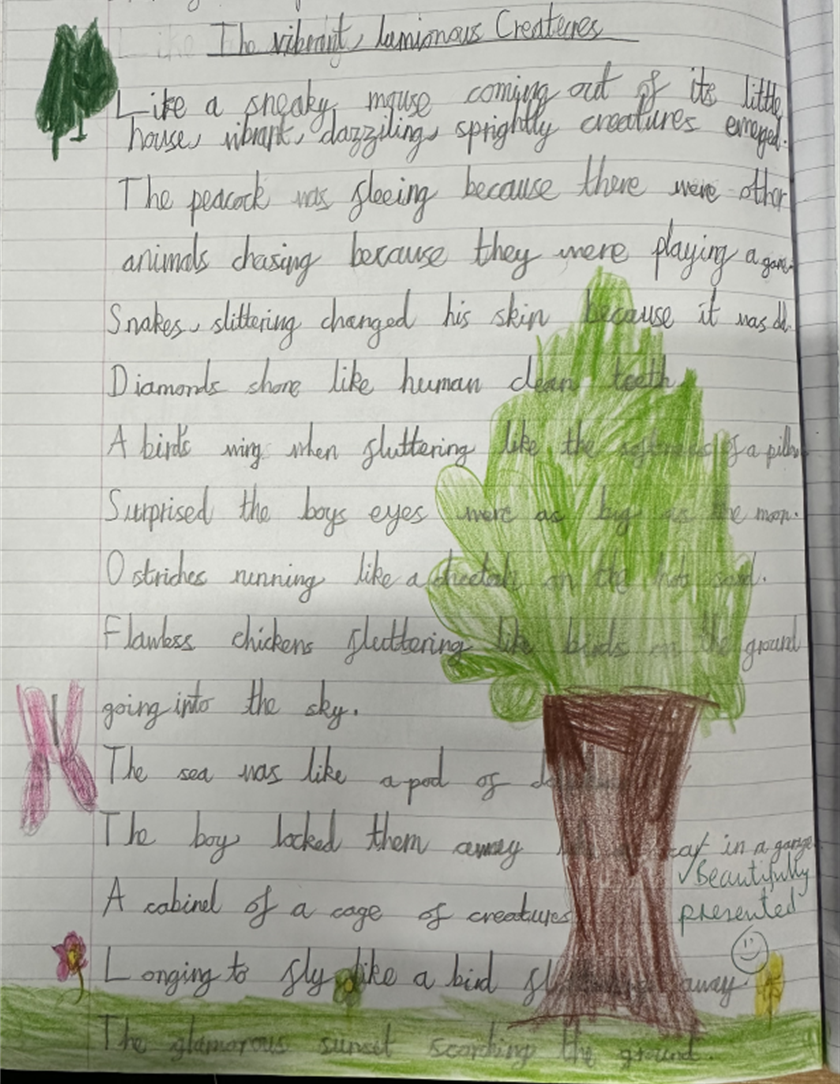 The vibrant, lumionous Creatures
Like a sneaky mouse coming out of its little
house, vibrant, dazziling, sprightly creatures emerged.
The peacock was fleeing because there were other
animals chasing because they were playing a game.
Snakes, slittering changed his skin because it was old.
Diamonds shone like human clean teeth.
A bird's wing when fluttering like the softness of a pillow
Surprised the boys eyes were as big as the moon.
Ostriches running like a cheetah on the hot sand.
Flawless chickens fluttering like birds on the ground
going into the sky.
The sea was like a pod of
The boy locked them away car in a garage
✓Beautifully
presented
A cabinel of a cage of creatures
Longing to fly like a bird away
The glamorous sunset scorching the ground.